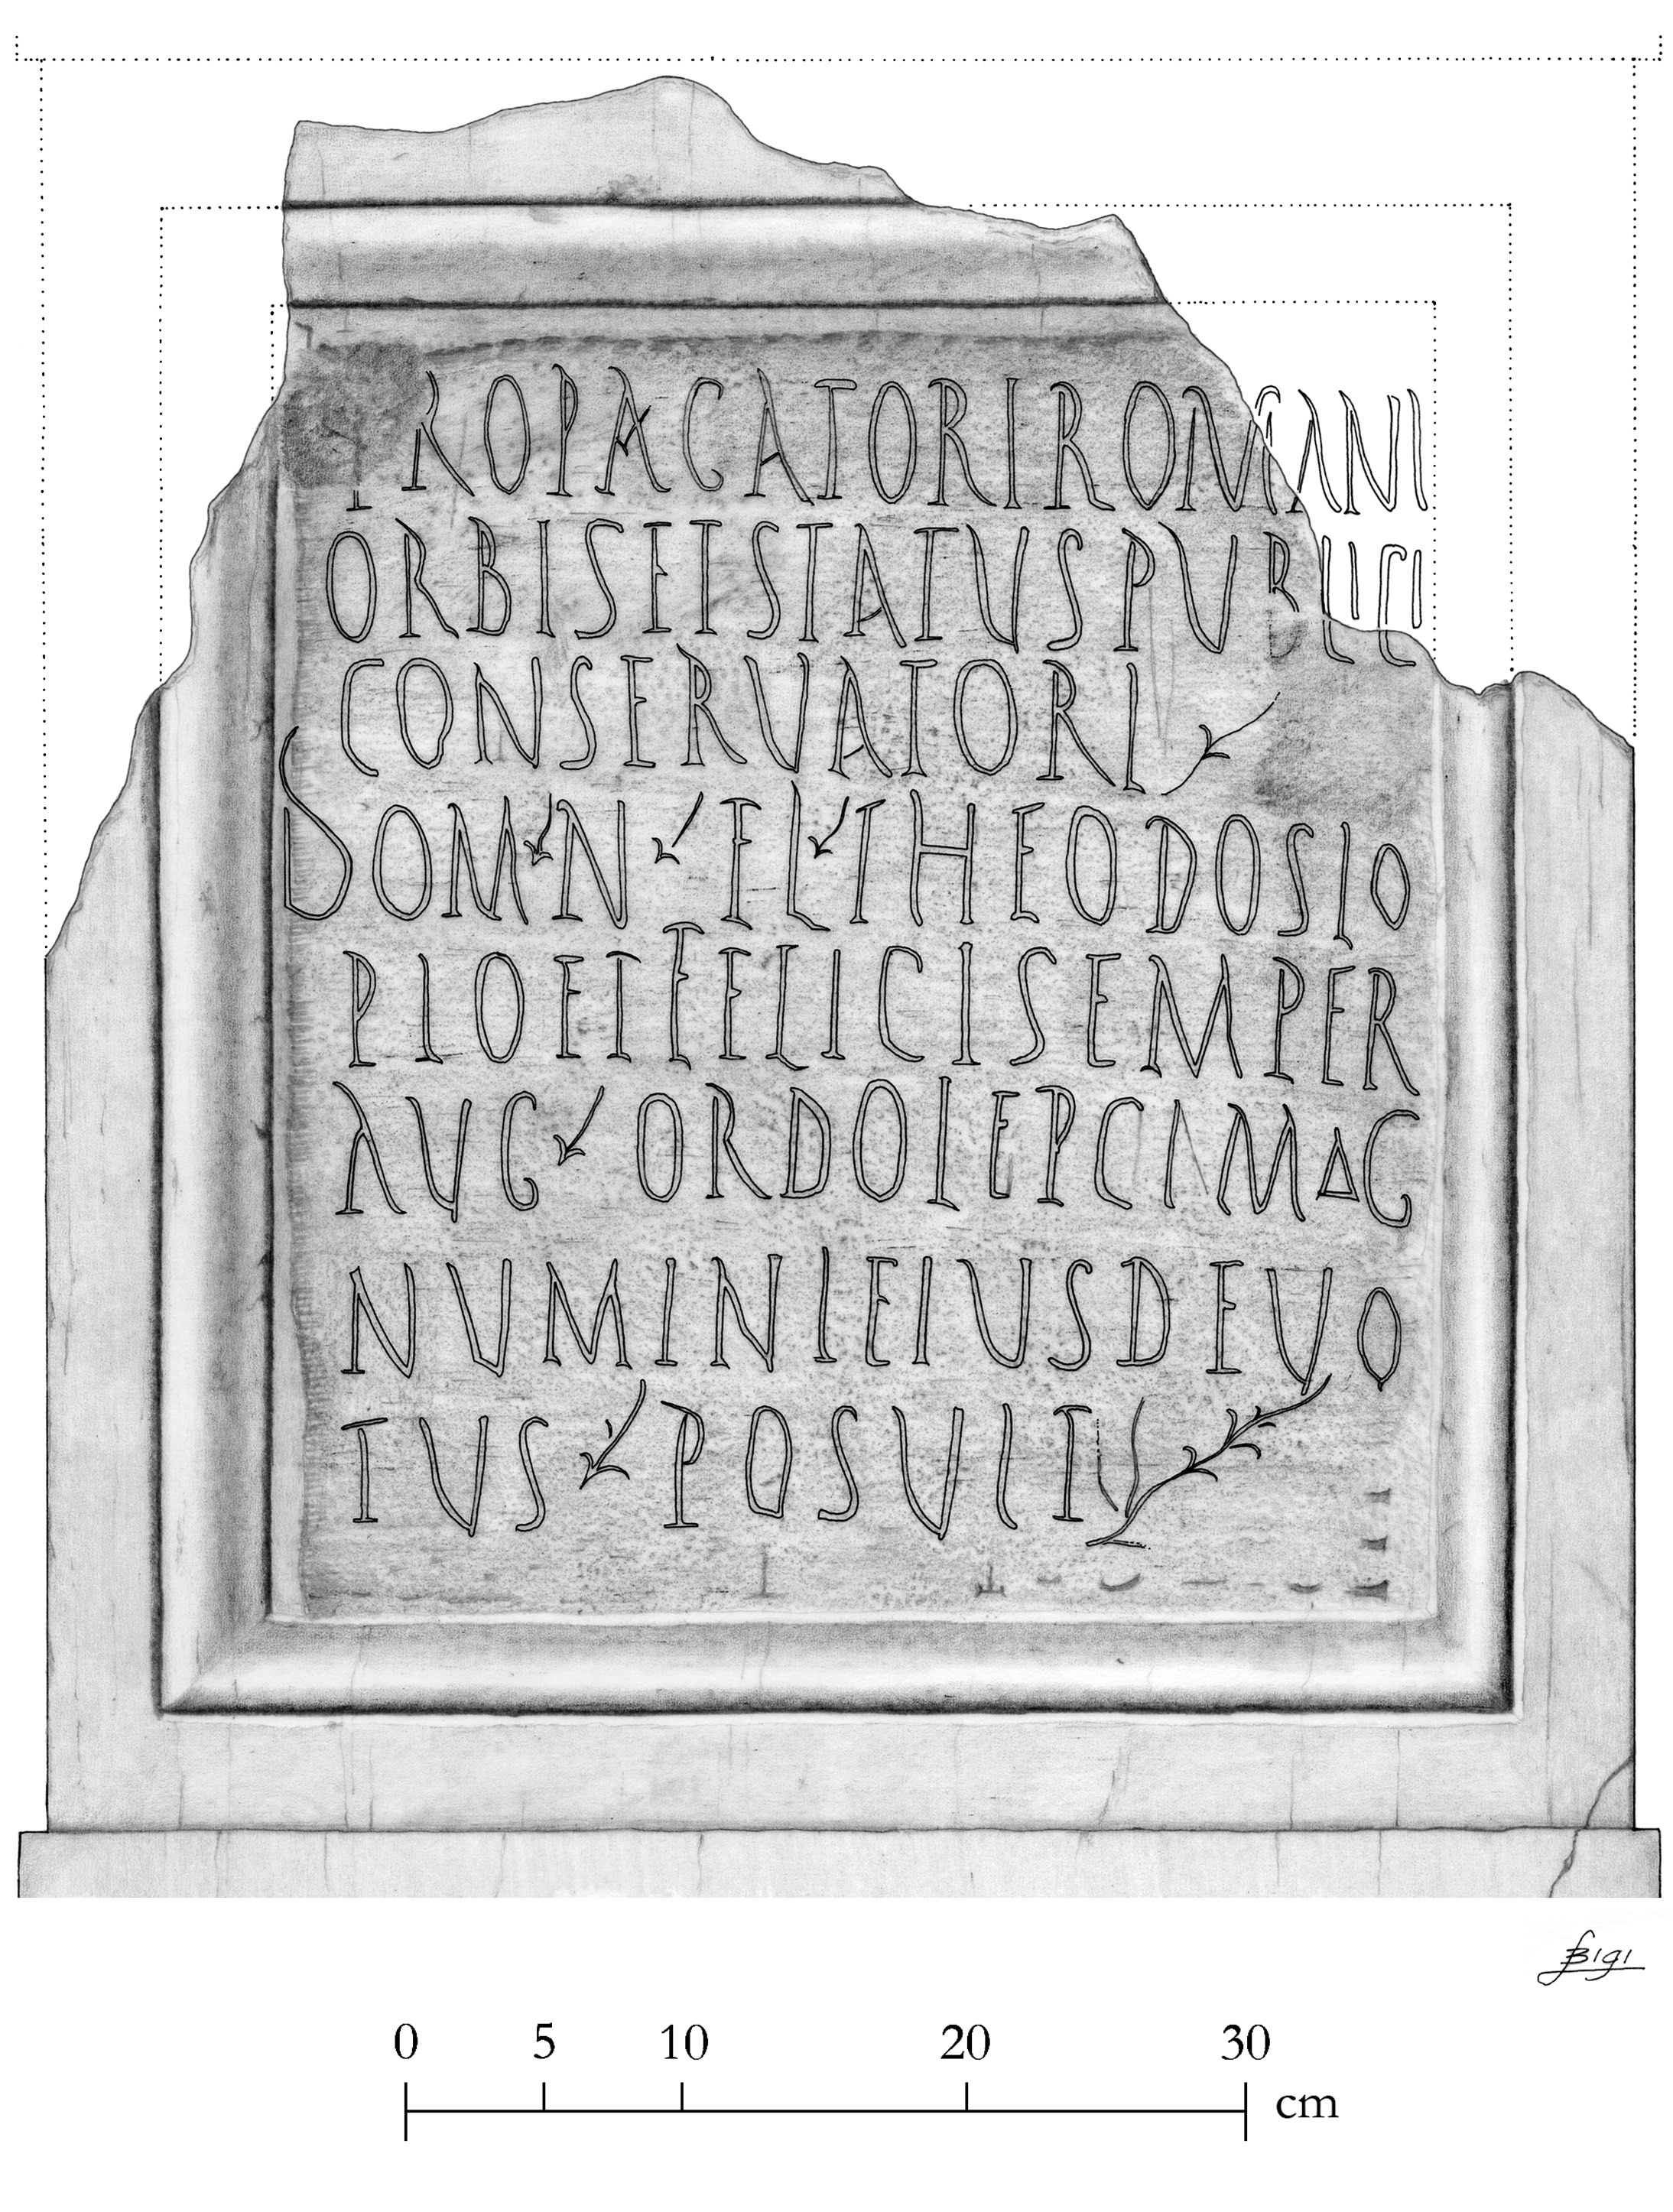 PROPAGATORI ROMANI
ORBIS ET STATUS PUBLICI
CONSERVATORI
DOM N FL THEODOSIO
PIO ET FELICI SEMPER
AUG ORDO LEPCI MAG
NUMINI EIUS DEVO
TUS POSUIT
SBIGI
0 5 10 20 30 cm